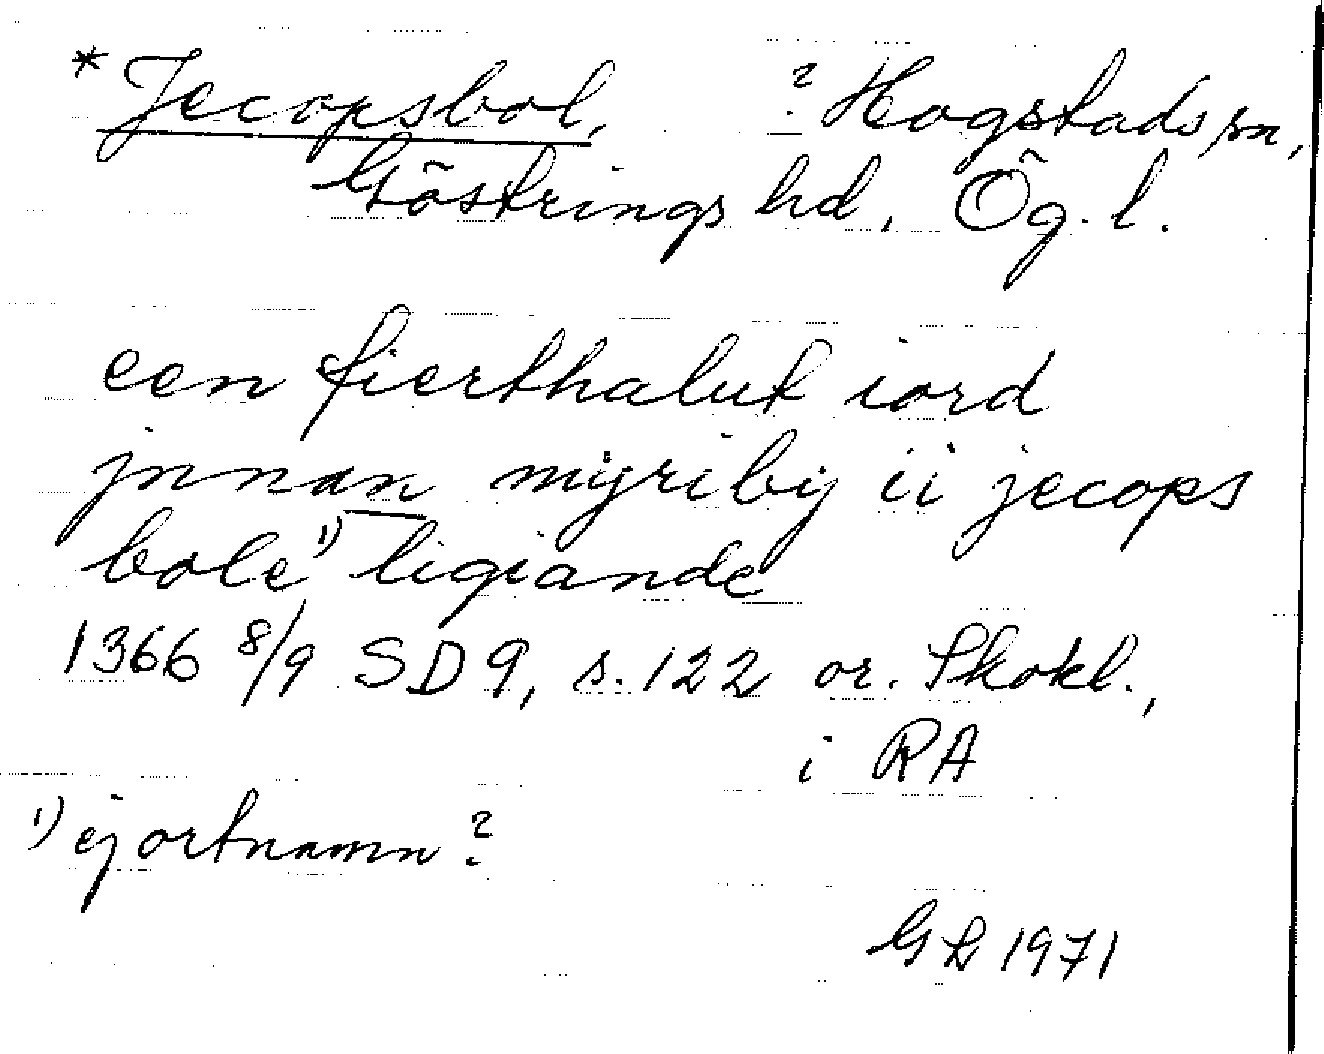 * Jecopsbol, ? Hogstads sn,
Göstrings hd, Ög. l.
een fierthalut iord
jnnan myriby ii jecops
bole¹⁾ ligiande
1366 8/9 SD 9, s. 122 or. Skokl.,
i RA
¹⁾ ej ortnamn?
GL 1971